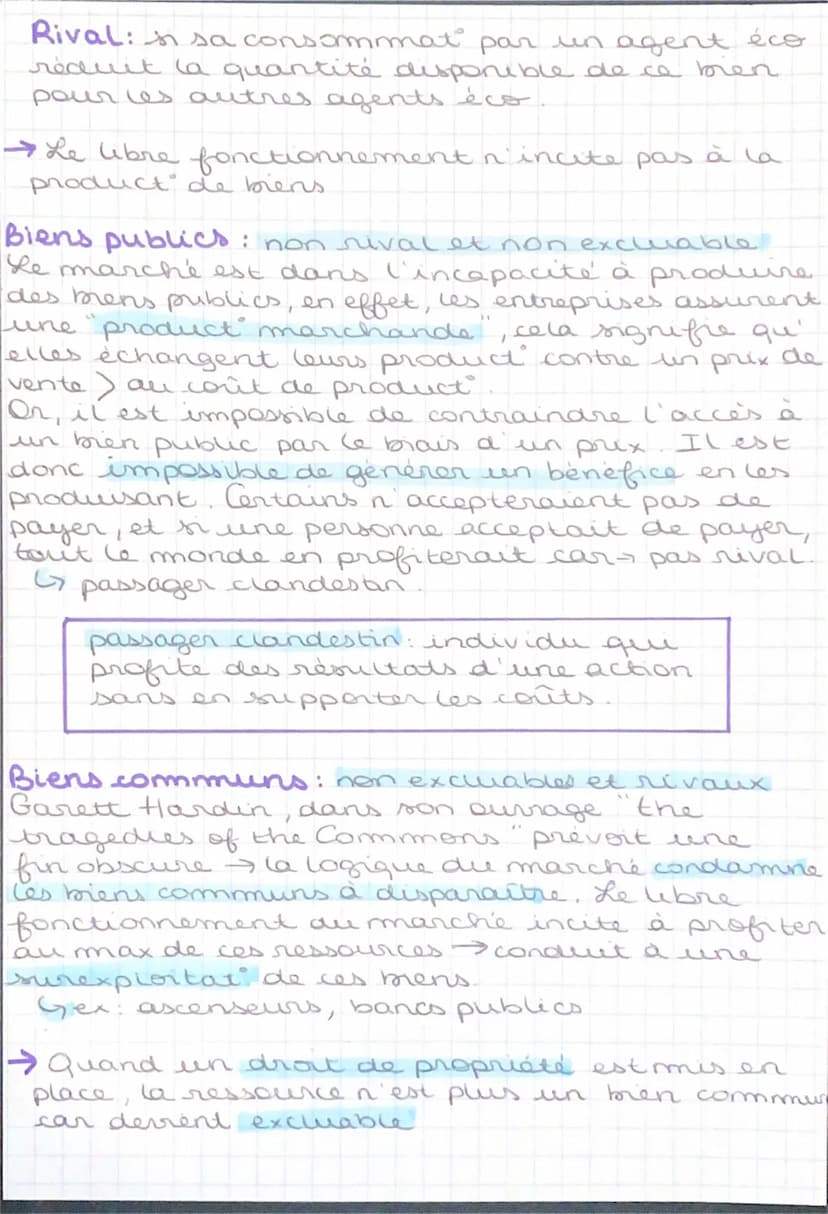 Rival: si sa consommat° par un agent éco
réduit la quantité disponible de ce bien
pour les autres agents éco.
→ Le libre fonctionnement n'incite pas à la
product° de biens
Biens publics : non rival et non excluable
Le marché est dans l'incapacité à produire
des biens publics, en effet, les entreprises assurent
une "product° marchande", cela signifie qu'
elles échangent leurs product° contre un prix de
vente > au coût de product°.
Or, il est impossible de contraindre l'accès à
un bien public par le biais d'un prix. Il est
donc impossible de générer un bénéfice en les
produisant. Certains n'accepteraient pas de
payer, et si une personne acceptait de payer,
tout le monde en profiterait car → pas rival.
↳ passager clandestin.
passager clandestin: individu qui
profite des résultats d'une action
sans en supporter les coûts.
Biens communs : non excluables et rivaux
Garett Hardin, dans son ouvrage "the
tragedies of the Commons" prévoit une
fin obscure → la logique du marché condamne
les biens communs à disparaître. Le libre
fonctionnement du marché incite à profiter
au max de ces ressources → conduit à une
surexploitat° de ces biens.
↳ ex: ascenseurs, bancs publics
→ Quand un droit de propriété est mis en
place, la ressource n'est plus un bien commun
car devient excluable